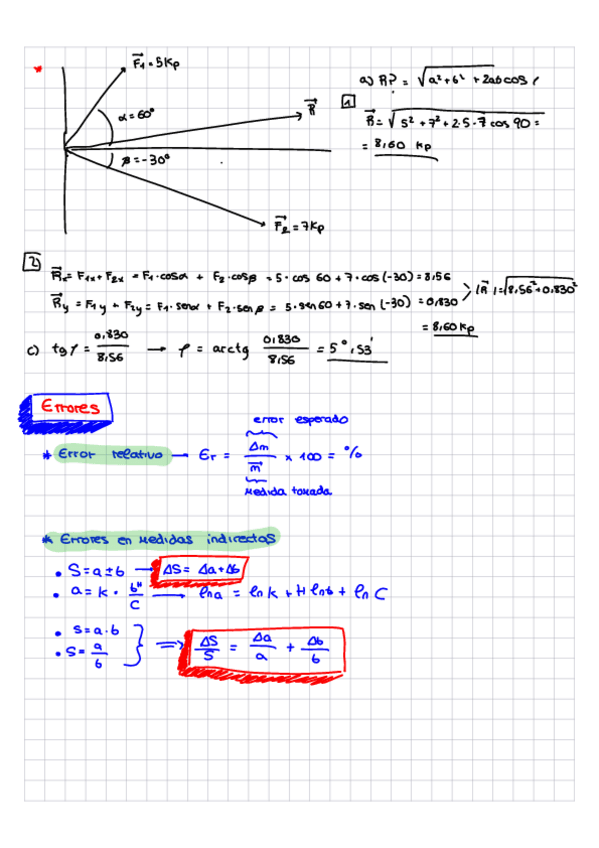 F₁=5Kp
a) R? = √a²+b²+2abcos φ
α=60°
R
1
R=√5²+7²+2·5·7 cos 90 =
= 8,60 Kp
β=-30°
F₂=7Kp
2
Rx=F1x+F2x = F₁·cosα + F₂·cosβ = 5·cos 60+7·cos(-30)=8,56
|R|=√8,56²+0,830²
Ry=F1y+F2y=F₁·senα+F₂·senβ = 5·sen60+7·sen(-30)=0,830
=8,60Kp
c) tgφ = 0,830/8,56 → φ = arctg 0,830/8,56 = 5°,53'
Errores
error esperado
* Error relativo → Er = Δm/m x 100 = %
Medida tomada
* Errores en medidas indirectas
• S=a±b → ΔS= Δa+Δb
• a=k·bᴴ/C → lna = lnk+H lnb+ ln C
• S=a·b
• S=a/b ⇒ ΔS/S = Δa/a + Δb/b